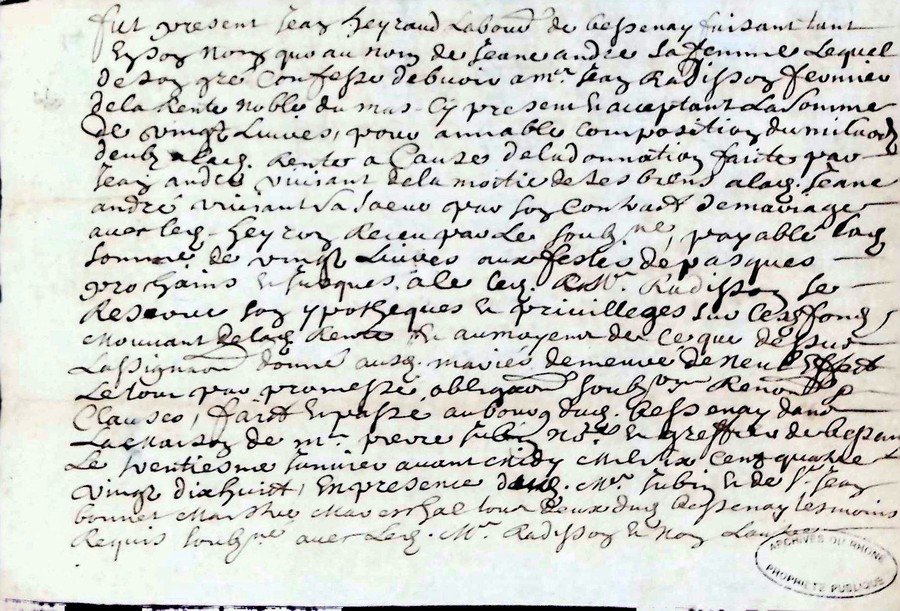 fut present Jean Heyraud Labour de Bessenay faisant tant
En son Nom que au nom de Jeane andré sa femme Lequel
de son gré Confesse debvoir a mr Jean Radisson fermier
de la Rente noble du mas Cy present & acceptant La Somme
de vingt Livres, pour amiable composition du milaod
deub a lad. Rente a Cause de la donnation faitte par
Jean andré vivant de la moitié de ses biens a lad. Jeane
andré vivant sa soeur par son Contract de mariage
avec led. Heyron Receu par Le soubsne, payable lad
somme de vingt Livres aux festes de pasques
prochains & Jusques a ce led. Mr Radisson se
Reserve son ypotheques & privilleges sur Les fond
Mouvant de lad. Rente & au moyeur de ce que dessus
Lassignaon donné ausd. mariés demeure de neul Effect
Le tout par promesse, obligaon soubson Renon
Clauses, faict & passé au bourg dud. Bessenay dans
La Maison de mr pierre Jubin nore & greffier de Bessenay
Le ventiesme Janvier avant midy Mil six Cent quatre
vingt dixhuict, En presence dud. Mr Jubin & de Sr Jean
bonnet Maistre Mareschal tous deux dud Bessenay tesmoins
Requis soubsné avec led. Mr Radisson & non
ARCHIVES DU RHONE
PROPRIÉTÉ PUBLIQUE